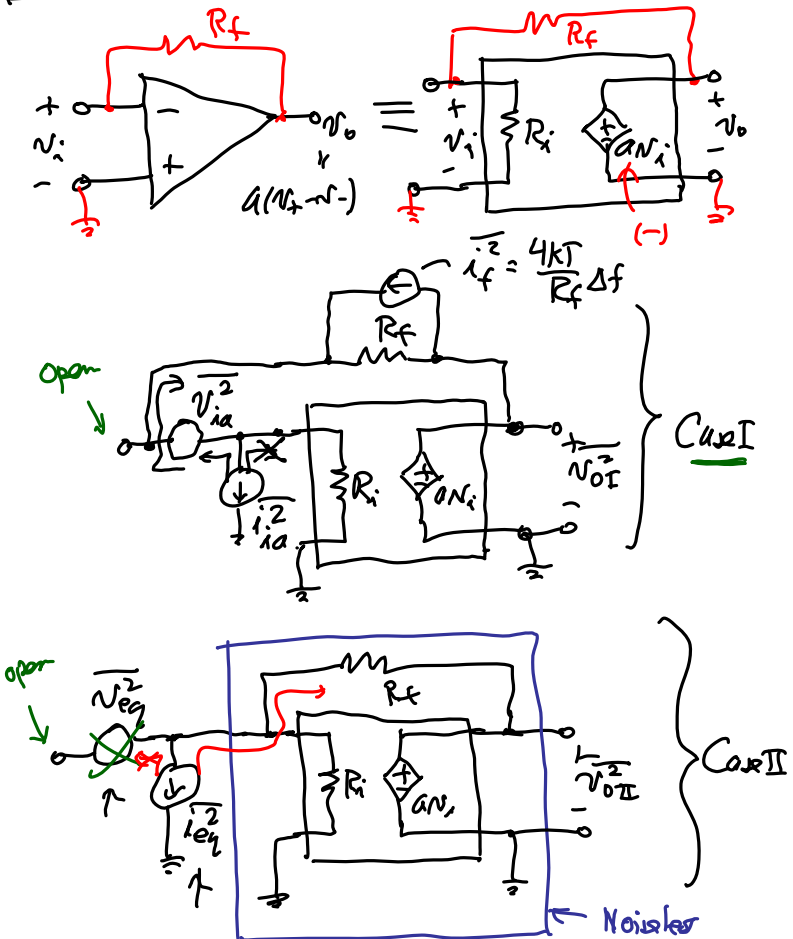 R_f
R_f
+
v_i
-
-
+
v_o
a(v_+ - v_-)
≡
+
v_i
-
R_i
+
-
a v_i
+
v_o
-
(-)
\overline{i_f^2} = \frac{4kT}{R_f} Δf
R_f
open
\overline{v_{ia}^2}
\overline{i_{ia}^2}
R_i
+
-
a v_i
+
\overline{v_{oI}^2}
-
Case I
open
\overline{v_{eq}^2}
\overline{i_{eq}^2}
R_f
R_i
+
-
a v_i
+
\overline{v_{oII}^2}
-
Case II
Noiseless